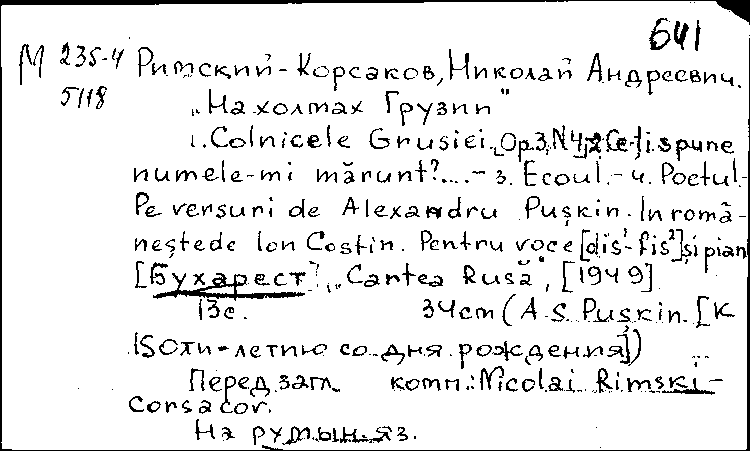 641
М 235-4 Римский-Корсаков, Николай Андреевич.
5118 „На холмах Грузии"
1. Colnicele Grusiei. [Op.3, N4] 2. Ce-ți spune
numele-mi mărunt?...- 3. Ecoul.- 4. Poetul.-
Pe versuri de Alexandru Pușkin. In romă-
neștede Ion Costin. Pentru voce [dis¹-fis²] și pian
[Бухарест], „Cartea Rusă", [1949]
13с. 34cm (A.S. Pușkin. [К
150ти-летию со дня рождения])
Перед загл. комп.: Nicolai Rimski-
Corsacov.
На румын.яз.